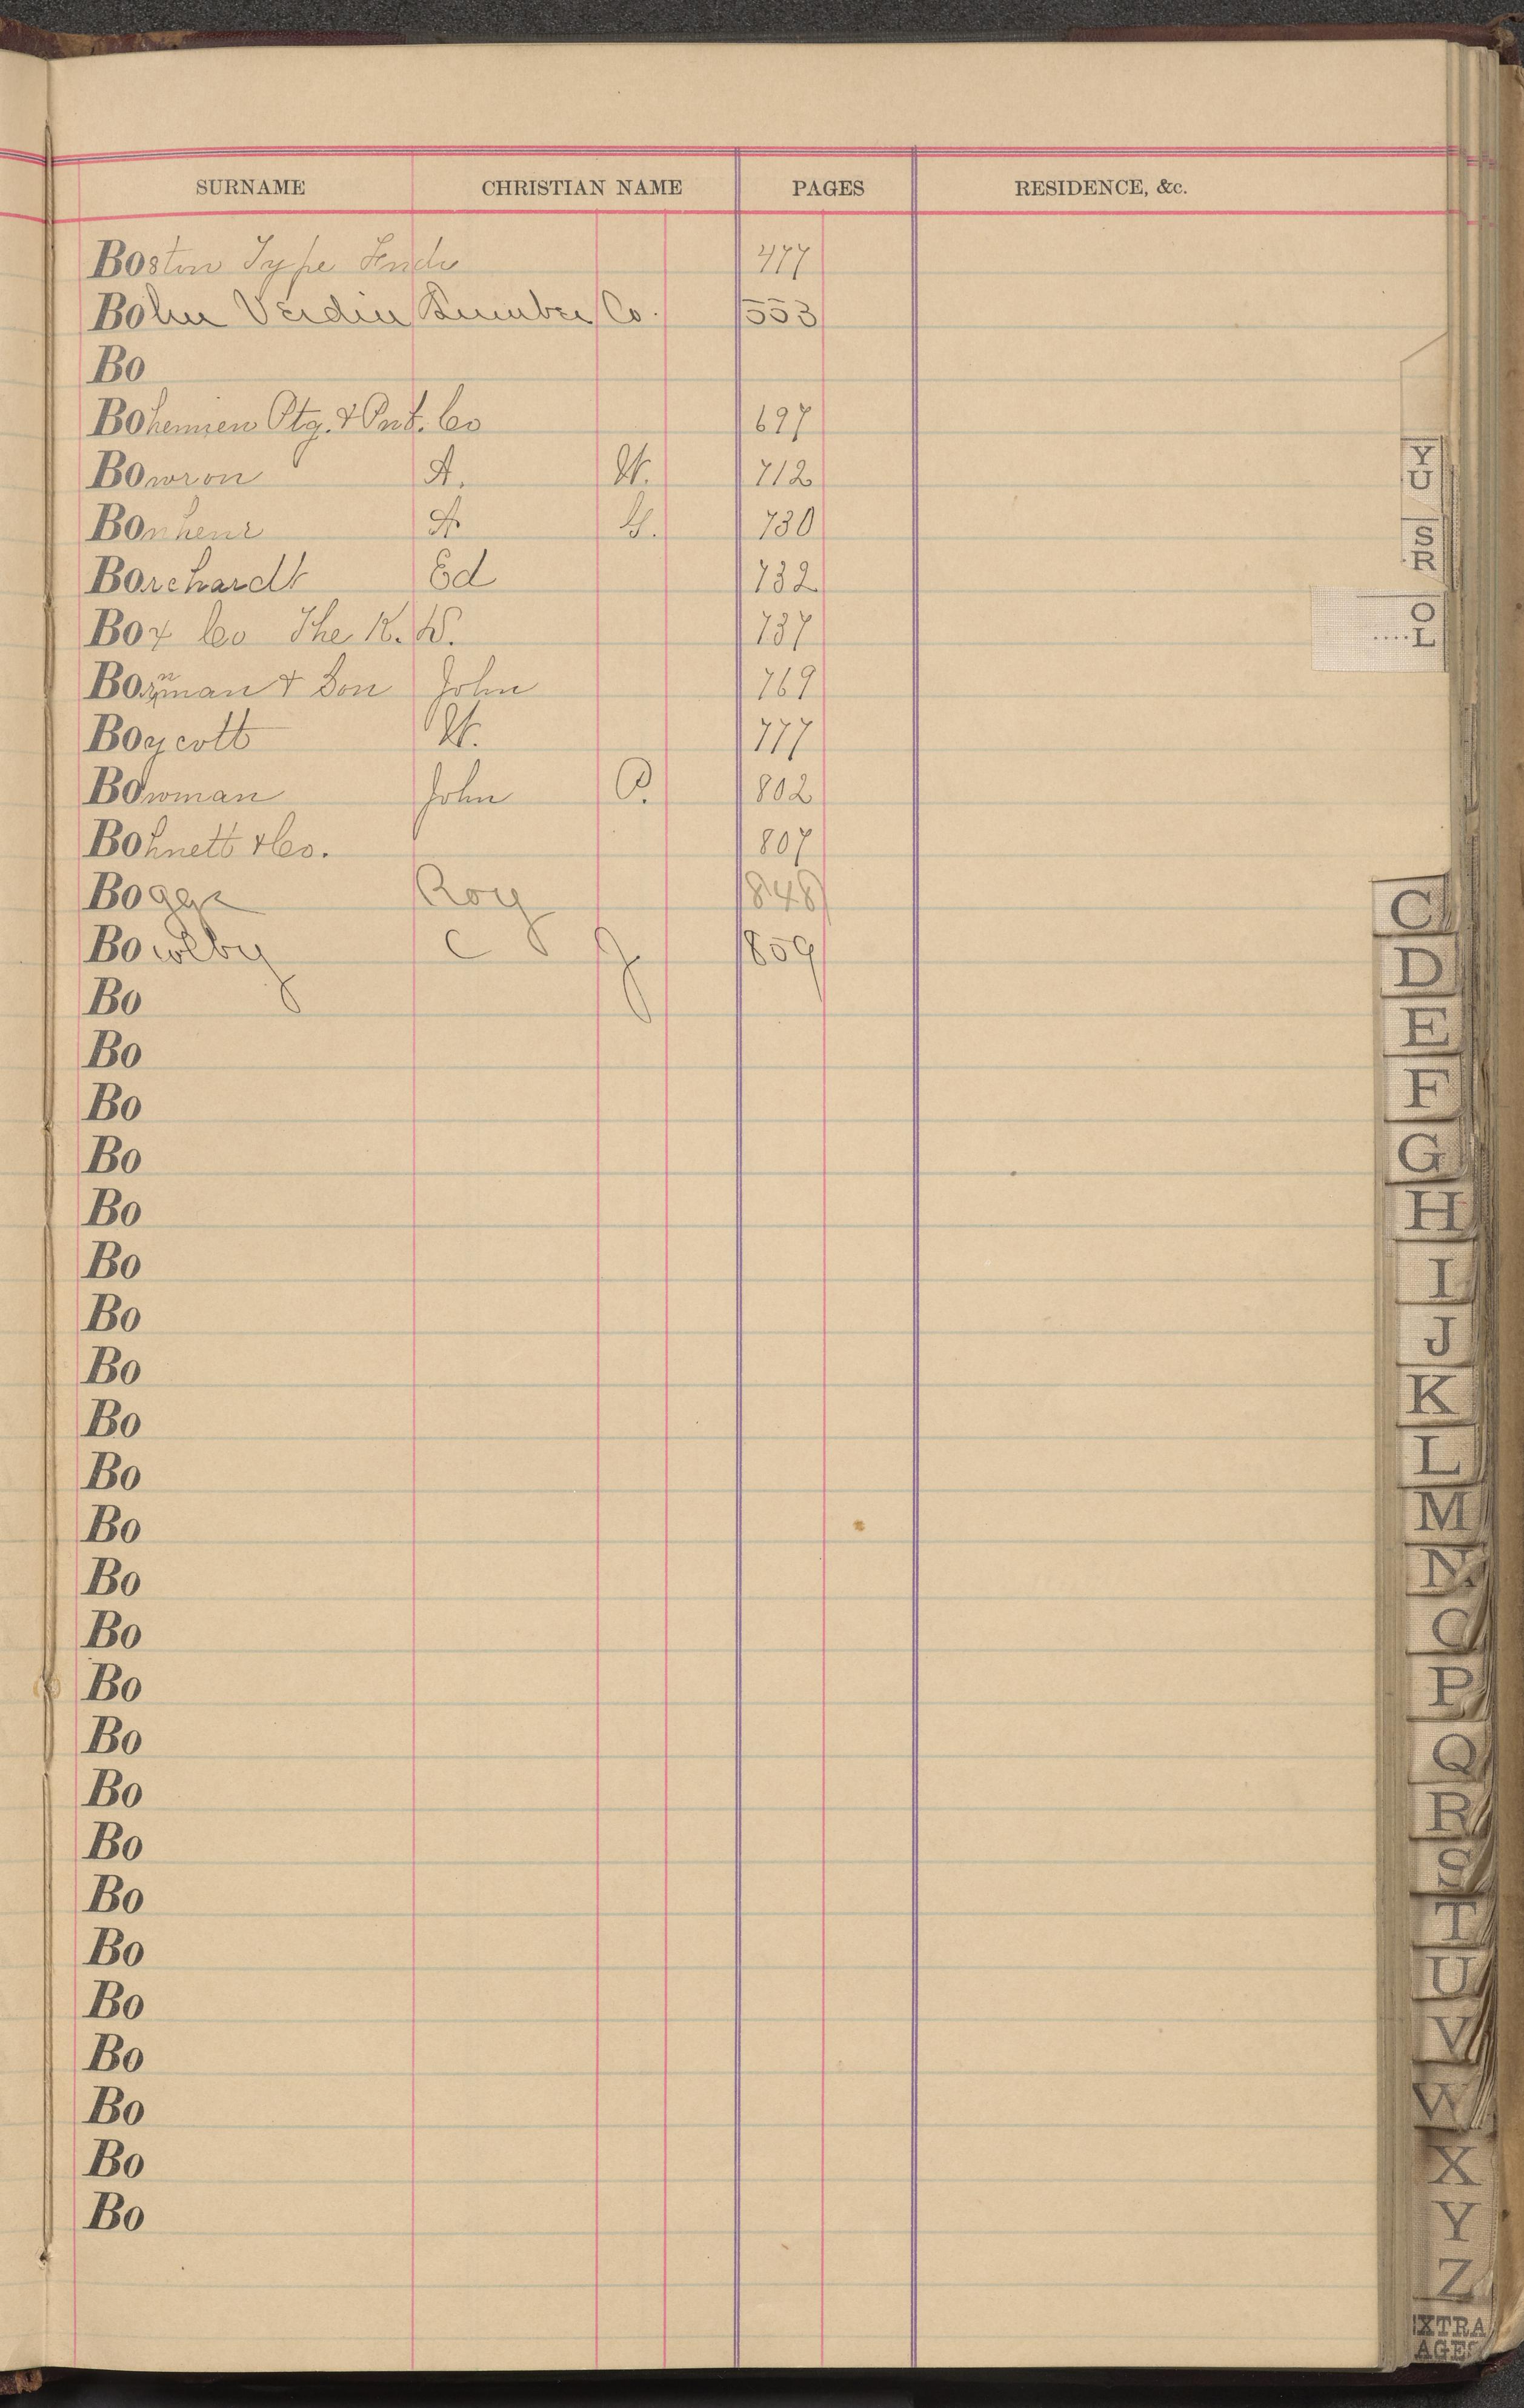 SURNAME CHRISTIAN NAME PAGES RESIDENCE, &c.
Boston Type Fndr 477
Bohn Verdin Lumber Co. 553
Bo
Bohemien Ptg. & Pub. Co 697
Bowron A. W. 712
Bonhenr A G. 730
Borchardt Ed 732
Box Co The K. W. 737
Bornman & Son John 769
Boycott W. 777
Bowman John P. 802
Bohnett & Co. 807
Boggs Roy 848
Bowlby C J 859
Bo
Bo
Bo
Bo
Bo
Bo
Bo
Bo
Bo
Bo
Bo
Bo
Bo
Bo
Bo
Bo
Bo
Bo
Bo
Bo
Bo
Bo
Bo
Bo
Y
U
S
R
O
L
C
D
E
F
G
H
I
J
K
L
M
N
O
P
Q
R
S
T
U
V
W
X
Y
Z
EXTRA
AGES